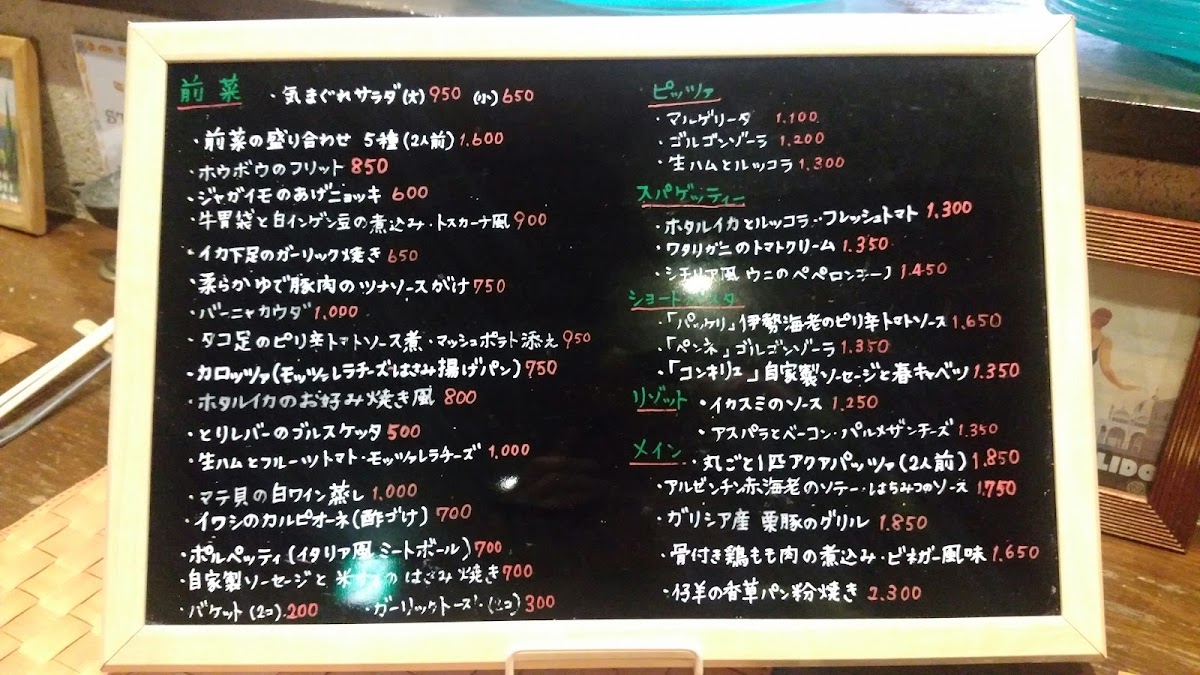 前菜 ・気まぐれサラダ(大)950 (小)650
・前菜の盛り合わせ 5種(2人前)1.600
・ホウボウのフリット 850
・ジャガイモのあげニョッキ 600
・牛胃袋と白インゲン豆の煮込み・トスカーナ風 900
・イカ下足のガーリック焼き 650
・柔らかゆで豚肉のツナソースがけ 750
・バーニャカウダ 1,000
・タコ足のピリ辛トマトソース煮・マッシュポテト添え 950
・カロッツァ(モッツァレラチーズはさみ揚げパン) 750
・ホタルイカのお好み焼き風 800
・とりレバーのブルスケッタ 500
・生ハムとフルーツトマト・モッツァレラチーズ 1,000
・マテ貝の白ワイン蒸し 1,000
・イワシのカルピオーネ(酢づけ) 700
・ポルペッティ(イタリア風ミートボール) 700
・自家製ソーセージと 米 の はさみ焼き 700
・バケット(2コ).200 ・ガーリックトースト(2コ) 300
ピッツァ
・マルゲリータ 1.100
・ゴルゴンゾーラ 1.200
・生ハムとルッコラ 1.300
スパゲッティー
・ホタルイカとルッコラ・フレッシュトマト 1.300
・ワタリガニのトマトクリーム 1.350
・シチリア風 ウニのペペロンチーノ 1.450
ショートパスタ
・「パッケリ」伊勢海老のピリ辛トマトソース 1.650
・「ペンネ」ゴルゴンゾーラ 1.350
・「コンキリエ」自家製ソーセージと春キャベツ 1.350
リゾット ・イカスミのソース 1.250
・アスパラとベーコン・パルメザンチーズ 1.350
メイン ・丸ごと1匹アクアパッツァ(2人前) 1.850
・アルゼンチン赤海老のソテー・はちみつのソース 1.750
・ガリシア産 栗豚のグリル 1.850
・骨付き鶏もも肉の煮込み・ビネガー風味 1.650
・仔羊の香草パン粉焼き 2.300
LIDO